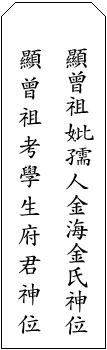 顯曾祖妣孺人金海金氏神位
顯曾祖考學生府君神位